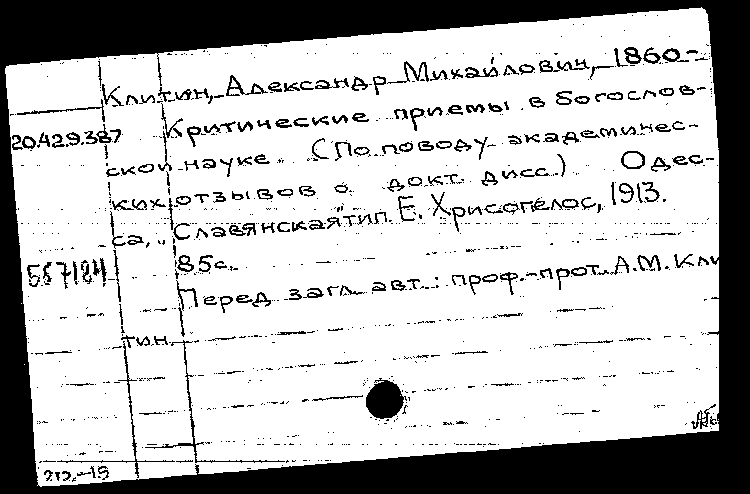 Клитин, Александр Михайлович, 1860-
20.429.387
Критические приемы в богослов-
ской науке. (По поводу академичес-
ких отзывов о докт. дисс.) Одес-
са, "Славянская" тип. Е. Хрисопелос, 1913.
85с.
557184
Перед загл. авт.: проф.-прот. А.М. Кли
тин.